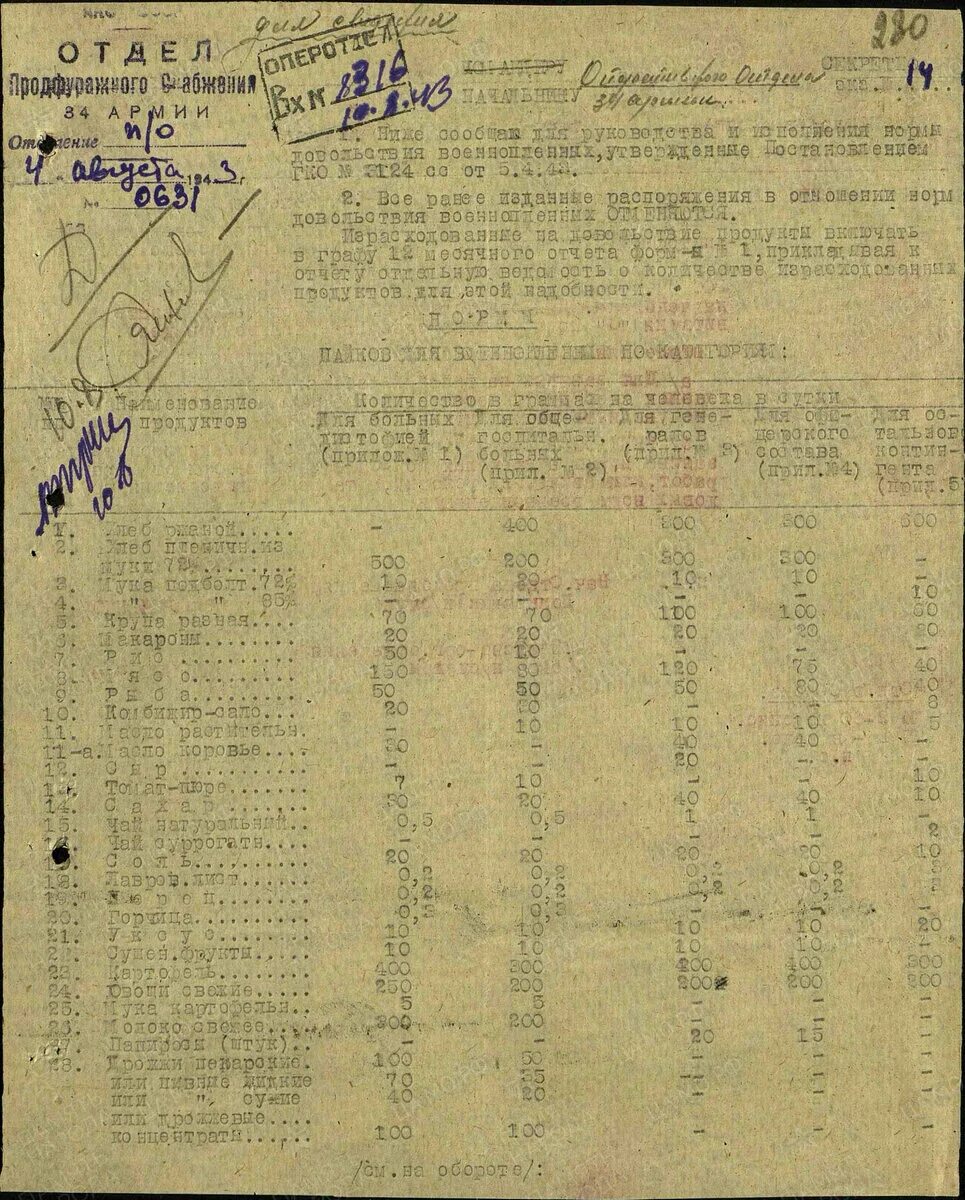 для сведения
280
ОТДЕЛ
Продфуражного Снабжения
34 АРМИИ
Отделение п/о
4 августа 1943 г.
№ 0631
ОПЕРОТДЕЛ
Вх № 1316
10.8.43
СЕКРЕТНО
ЭКЗ.№ 14
КОМАНДИРУ
НАЧАЛЬНИКУ Оперативного Отдела
34 армии
1. Ниже сообщаю для руководства и исполнения нормы
довольствия военнопленных, утвержденные Постановлением
ГКО № 3124 сс от 5.4.43.
2. Все ранее изданные распоряжения в отношении норм
довольствия военнопленных ОТМЕНЯЮТСЯ.
Израсходованные на довольствие продукты включать
в графу 12 месячного отчета форм-я № 1, прикладывая к
отчету отдельную ведомость о количестве израсходованных
продуктов для этой надобности.
НОРМЫ
ПАЙКОВ ДЛЯ ВОЕННОПЛЕННЫХ ПО КАТЕГОРИЯМ:
10.8
10.8
Наименование продуктов
Количество в граммах на человека в сутки
Для больных дистофией (прилож.№ 1)
Для обще-госпитальн. больных (прил. № 2)
Для гене-ралов (прил.№ 3)
Для офи-церского состава (прил.№4)
Для ос-тальново контин-гента (прил.5)
1. Хлеб ржаной..... - 400 300 300 600
2. Хлеб пшеничн.из
муки 72%........ 500 200 300 300 -
3. Мука подболт.72% 10 20 10 10 -
4. " " 85% - - - - 10
5. Крупа разная.... 70 70 100 100 60
6. Макароны........ 20 20 20 20 20
7. Рис ......... 50 10 - - -
8. Мясо......... 150 80 120 75 40
9. Рыба......... 50 50 50 80 40
10. Комбижир-сало... 20 20 - - 8
11. Масло растительн. - 10 10 10 5
11-а. Масло коровье.... 30 - 40 40 -
12. Сыр ......... - - 20 - -
13. Томат-пюре....... 7 10 - - 10
14. Сахар........ 30 20 40 40 10
15. Чай натуральный.. 0,5 0,5 1 1 -
16. Чай суррогатн.... - - - - 2
17. Соль......... 20 20 20 20 10
18. Лавров.лист...... 0,2 0,2 0,2 0,2
19. Перец........ 0,2 0,2
20. Горчица.......... 0,
21. Уксус........ 10 10 10 10 20
22. Сушен.фрукты..... 10 10 10 10 -
23. Картофель........ 400 300 400 400 300
24. Овощи свежие..... 250 200 200 200 200
25. Мука картофельн.. 5 5 - - -
26. Молоко свежее.... 300 200 - - -
27. Папиросы (штук).. - - 20 15 -
28. Дрожжи пекарские. 100 50 - - -
или пивные жидкие 70 35 - - -
или " сухие 40 20 - - -
или дрожжевые....
концентраты...... 100 100 - - -
/см.на обороте/: